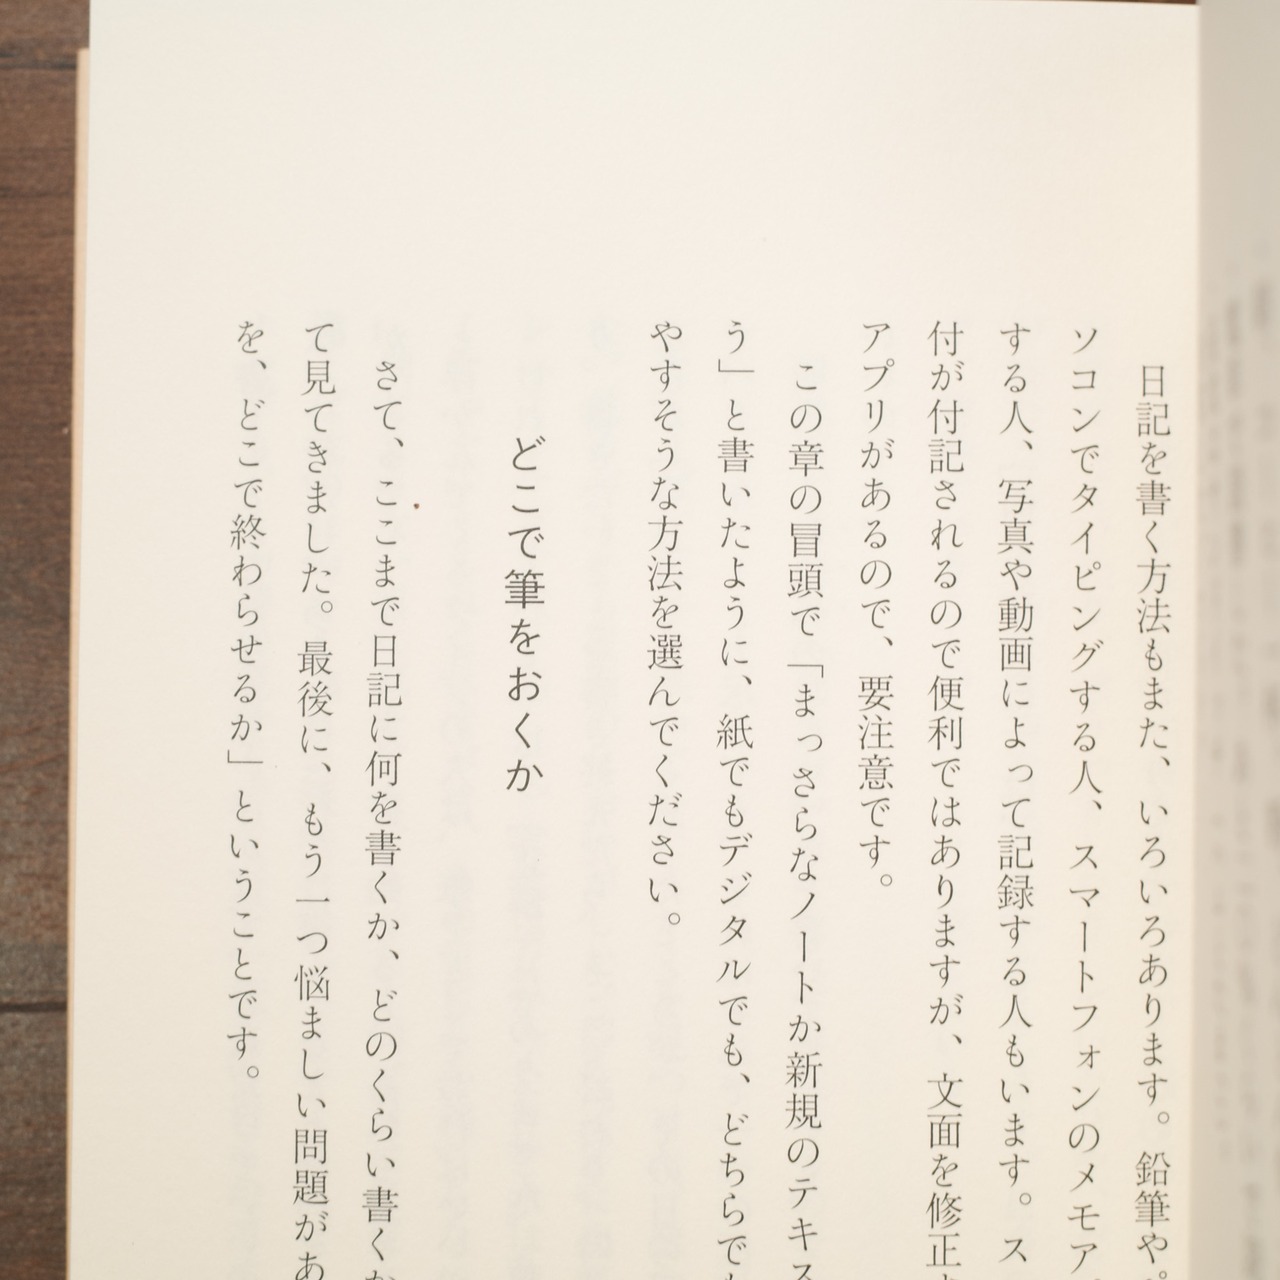 日記を書く方法もまた、いろいろあります。鉛筆や
ソコンでタイピングする人、スマートフォンのメモア
する人、写真や動画によって記録する人もいます。ス
付が付記されるので便利ではありますが、文面を修正
アプリがあるので、要注意です。
この章の冒頭で「まっさらなノートか新規のテキス
う」と書いたように、紙でもデジタルでも、どちらでも
やすそうな方法を選んでください。
どこで筆をおくか
さて、ここまで日記に何を書くか、どのくらい書くか
て見てきました。最後に、もう一つ悩ましい問題があ
を、どこで終わらせるか」ということです。